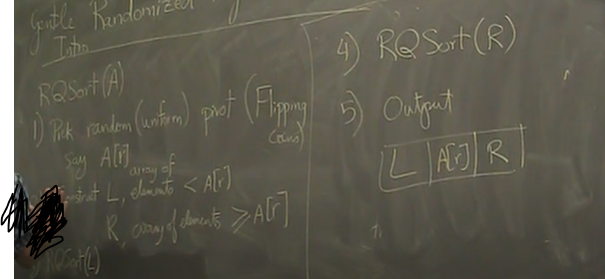 Gentle Randomized
Intro
RQSort(A)
1) Pick random (uniform) pivot (Flipping
coins)
say A[r]
array of
L, elements < A[r]
R, array of elements ≥ A[r]
RQSort(L)
4) RQSort(R)
5) Output
L | A[r] | R